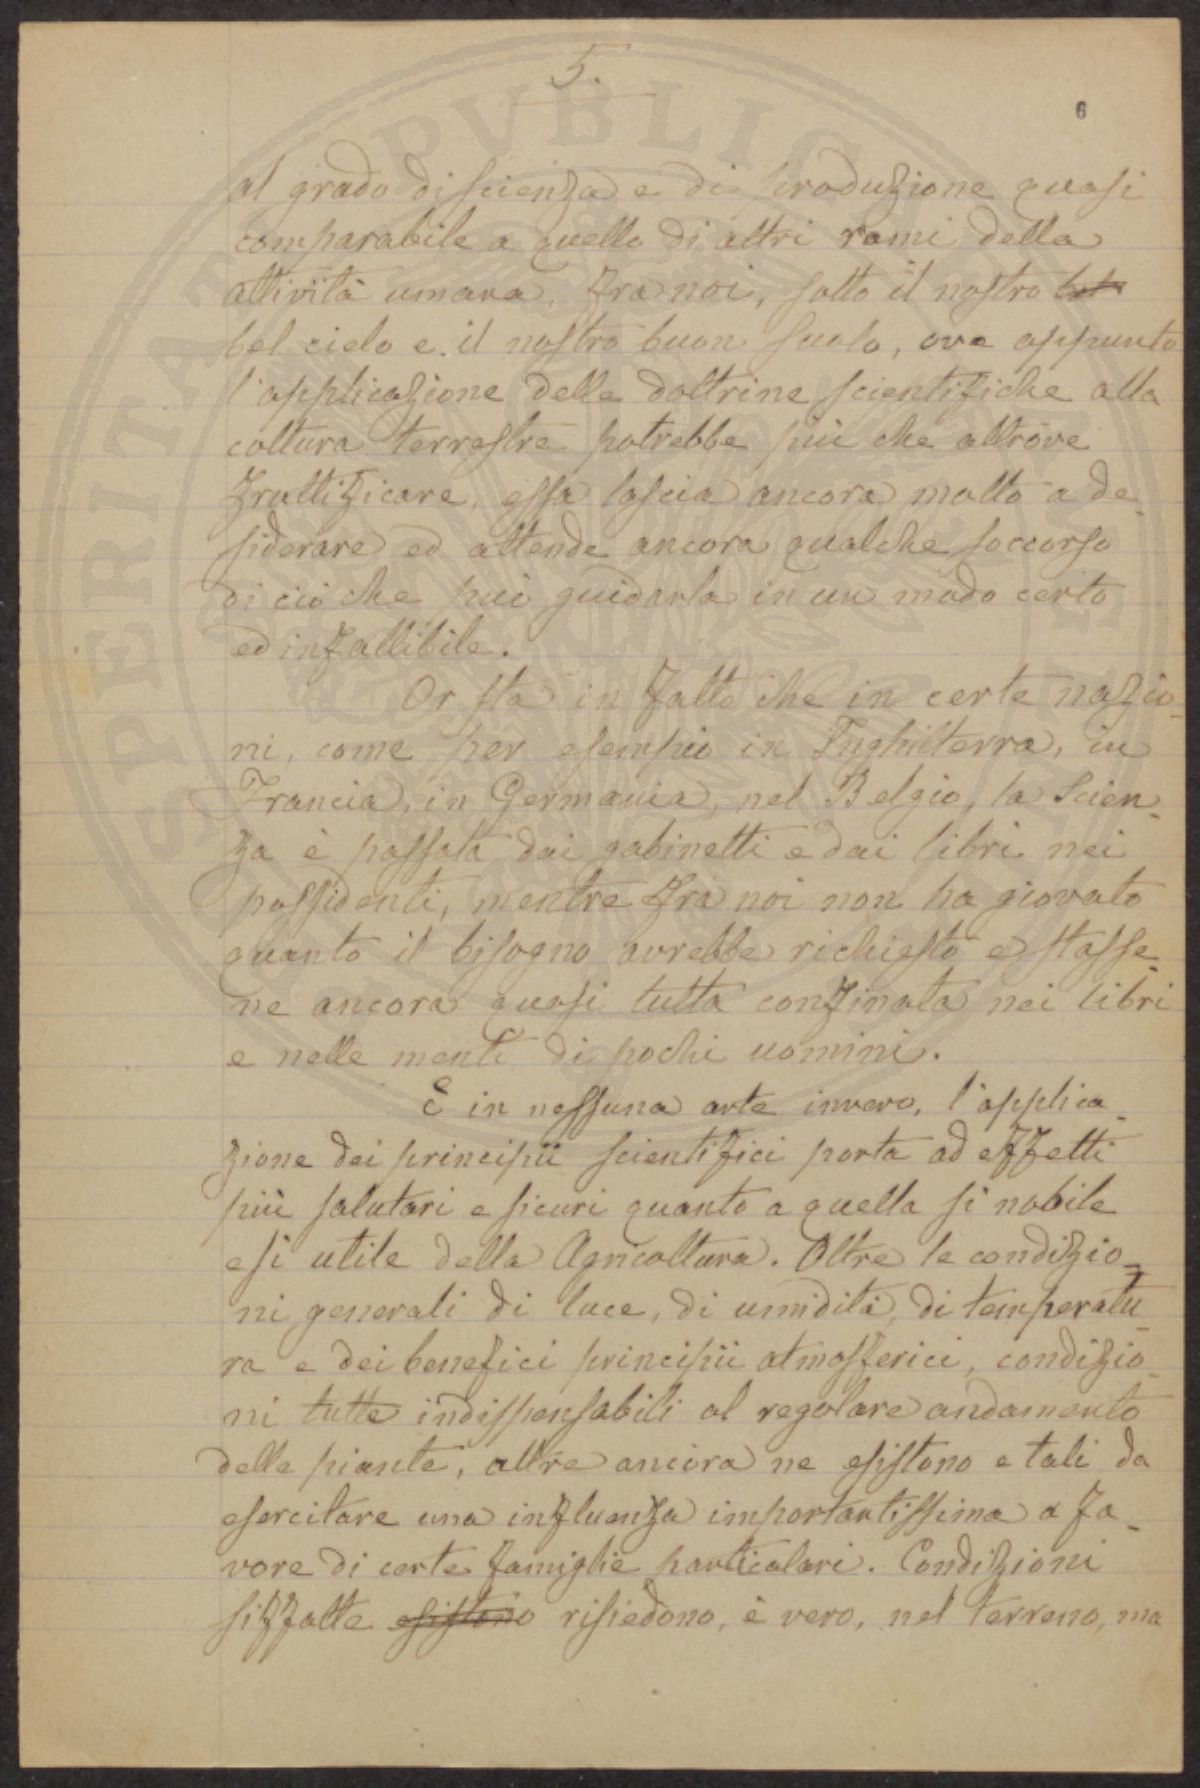 5.
6
al grado di scienza e di produzione quasi
comparabile a quello di altri rami della
attività umana. Fra noi, sotto il nostro
bel cielo e il nostro buon suolo, ove appunto
l'applicazione delle dottrine scientifiche alla
coltura terrestre potrebbe più che altrove
fruttificare, essa lascia ancora molto a de-
siderare ed attende ancora qualche soccorso
di ciò che può guidarla in un modo certo
ed infallibile.
Or sta in fatto che in certe nazio-
ni, come per esempio in Inghilterra, in
Francia, in Germania, nel Belgio, la Scien-
za è passata dai gabinetti e dai libri nei
possidenti, mentre fra noi non ha giovato
quanto il bisogno avrebbe richiesto e stasse-
ne ancora quasi tutta confinata nei libri
e nelle menti di pochi uomini.
E in nessuna arte invero, l'applica-
zione dei principii scientifici porta ad effetti
più salutari e sicuri quanto a quella sì nobile
e sì utile della Agricoltura. Oltre le condizio-
ni generali di luce, di umidità, di temperatu-
ra e dei benefici principii atmosferici, condizio-
ni tutte indispensabili al regolare andamento
delle piante, altre ancora ne esistono e tali da
esercitare una influenza importantissima a fa-
vore di certe famiglie particolari. Condizioni
siffatte esistono risiedono, è vero, nel terreno, ma